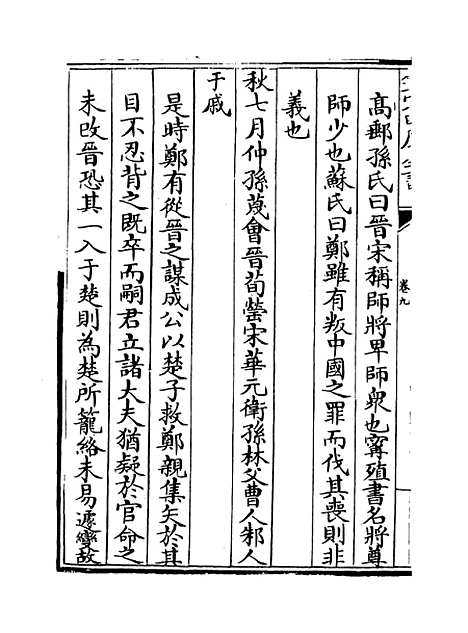 高郵孫氏曰晉宋稱師將卑師衆也甯殖書名將尊
師少也蘇氏曰鄭雖有叛中國之罪而伐其喪則非
義也
秋七月仲孫蔑會晉荀罃宋華元衛孫林父曹人邾人
于戚
是時鄭有從晉之謀成公以楚子救鄭親集矢於其
目不忍背之既卒而嗣君立諸大夫猶疑於官命之
未改晉恐其一入于楚則為楚所籠絡未易遽變故
卷九